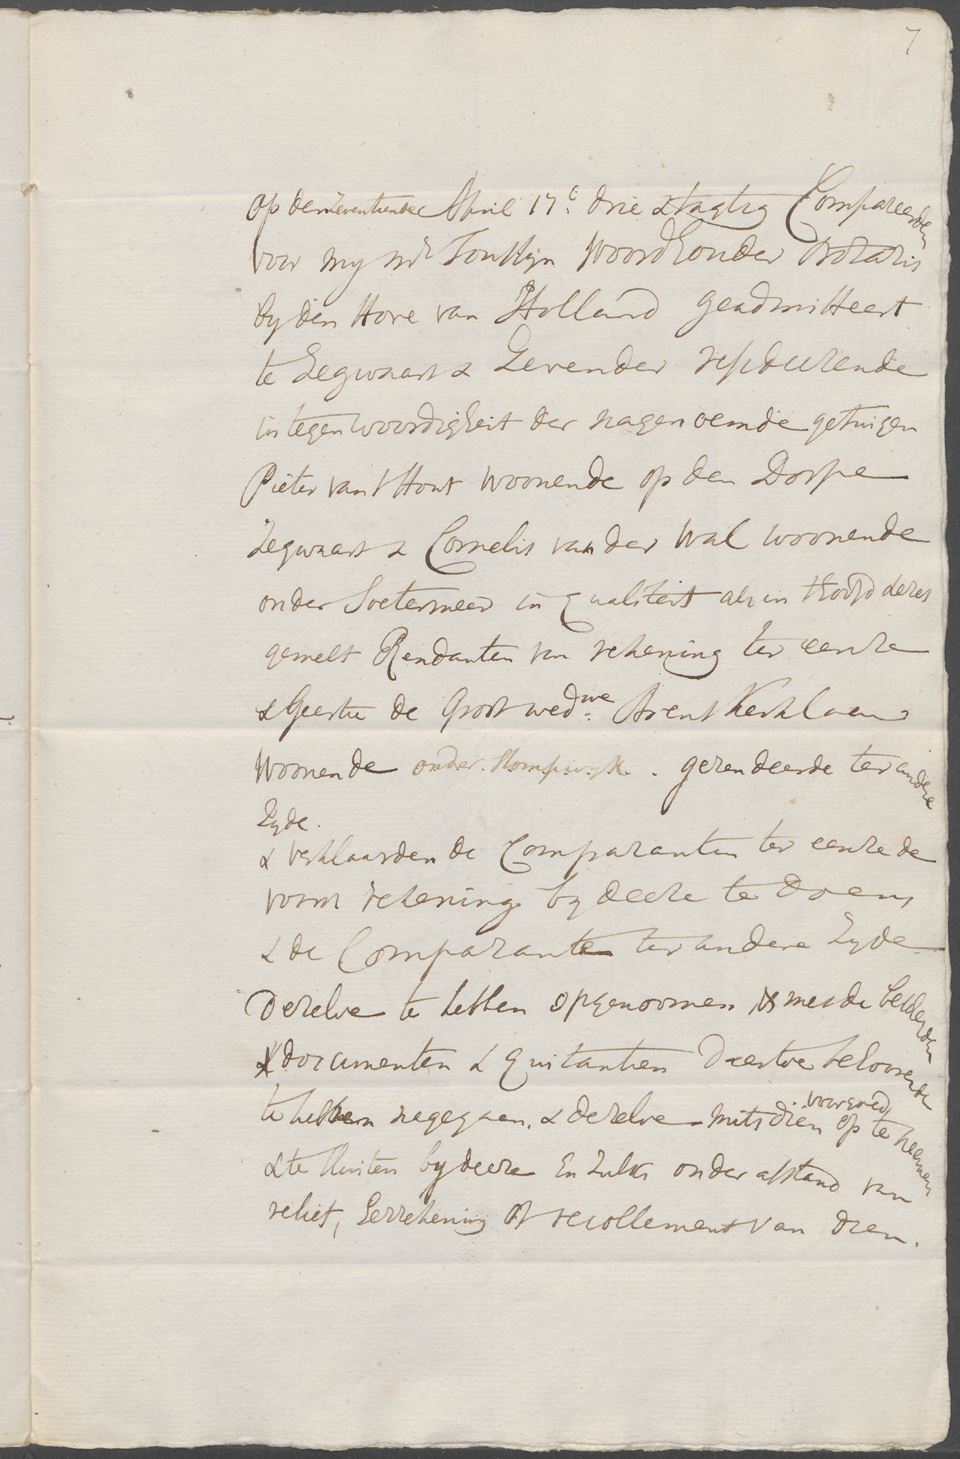 7
op den seventienden April 17c. drie & tagtig Compareerden
voor my Mr Jonklyn Noordhonder Notaris
by den Hove van Holland geadmitteert
te Zegwaart & Zevender resideerende
in tegenwoordigheit der nagenoemde getuigen
Pieter van t Hout woonende op den Dorpe
Zegwaart & Cornelis van der Wal woonende
onder Soetermeer in qualiteit als in t hoofd dezes
gemelt Rendanten van rekening ter eenre
& Geertie de Groot wedwe. Arent Kerklaen
woonende onder Stompwyk. gerendeerde ter andere
Zyde.
& verklaarden de Comparanten ter eenre de
vorm rekening by deeze te doen
& de Comparante ter andere Zyde
dezelve te hebben opgenoomen, mits de
documenten & quitantien
te hebben nagegaen. & dezelve mits dien voor goed op te neemen
& te sluiten by deeze En zulks onder afstand van
relief, herrekening of recollement van dien.